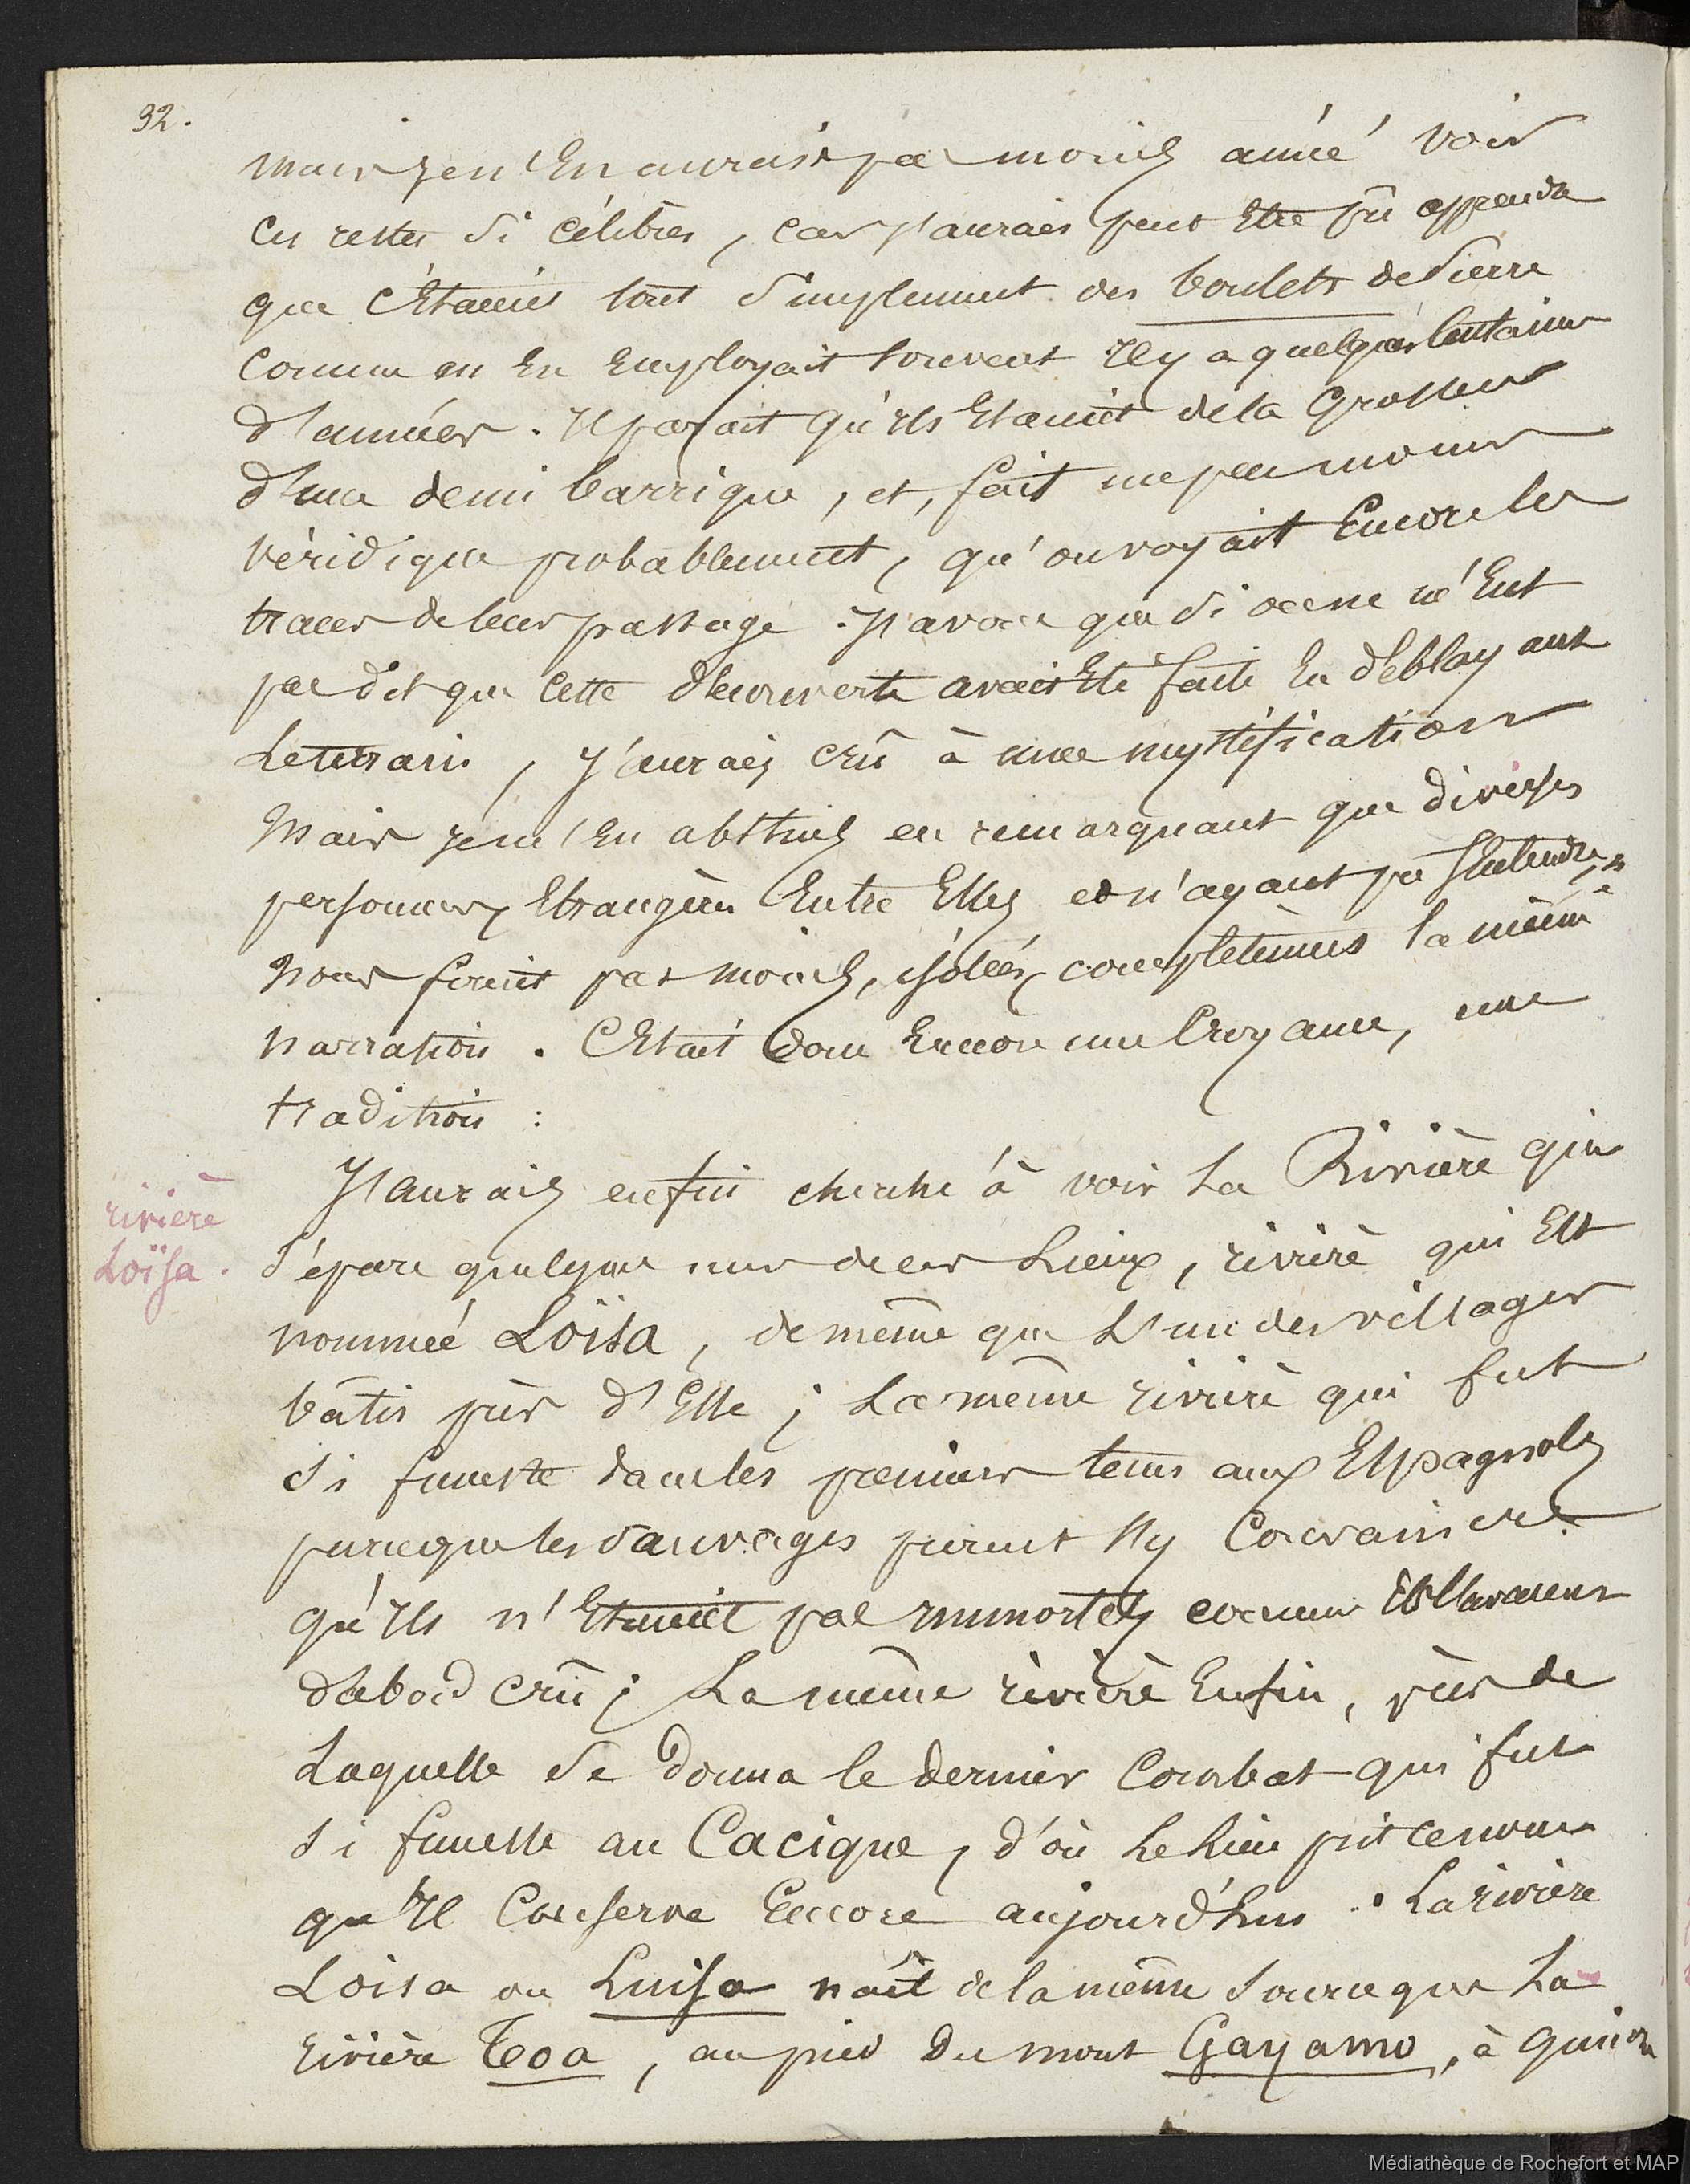 92.
mais je n'en aurais pas moins aimé voir
ces restes si célèbres, car j'aurais peut etre pû apprendre
que c'étaient tout simplement des boulets de Pierre
comme on en employait souvent il y a quelques centaines
d'années. Il parait qu'ils etaient de la grosseur
d'une demi barrique, et, fait un peu moins
véridique probablement, qu'on voyait encore les
traces de leur passage. J'avoue que si on ne m'eut
pas dit que cette découverte avait été faite en déblayant
le terrain, j'aurais crû à une mystification
mais je m'en abstins en remarquant que diverses
personnes etrangères entre elles et n'ayant pu s'entendre,
nous firent par moins, isolées complètement la même
narration. C'était donc encore une croyance, une
tradition :
J'aurais enfin cherché à voir la Rivière qui
sépare quelques uns de ces lieux, rivière qui est
nommée Loïsa, de même que l'un des villages
bâtis près d'elle ; la même rivière qui fut
si funeste dans les premiers tems aux Espagnols
parceque les sauvages purent s'y convaincre
qu'ils n'etaient pas immortels comme ils l'avaient
d'abord crû ; La même rivière enfin, près de
laquelle se donna le dernier combat qui fut
si funeste au Cacique, d'où le lieu prit ce nom
qu'il conserve encore aujourd'hui. La rivière
Loisa ou Luisa naît de la même source que la
rivière Toa, au pied du mont Gayamo, à quinze
rivière
Loïsa.
Médiathèque de Rochefort et MAP